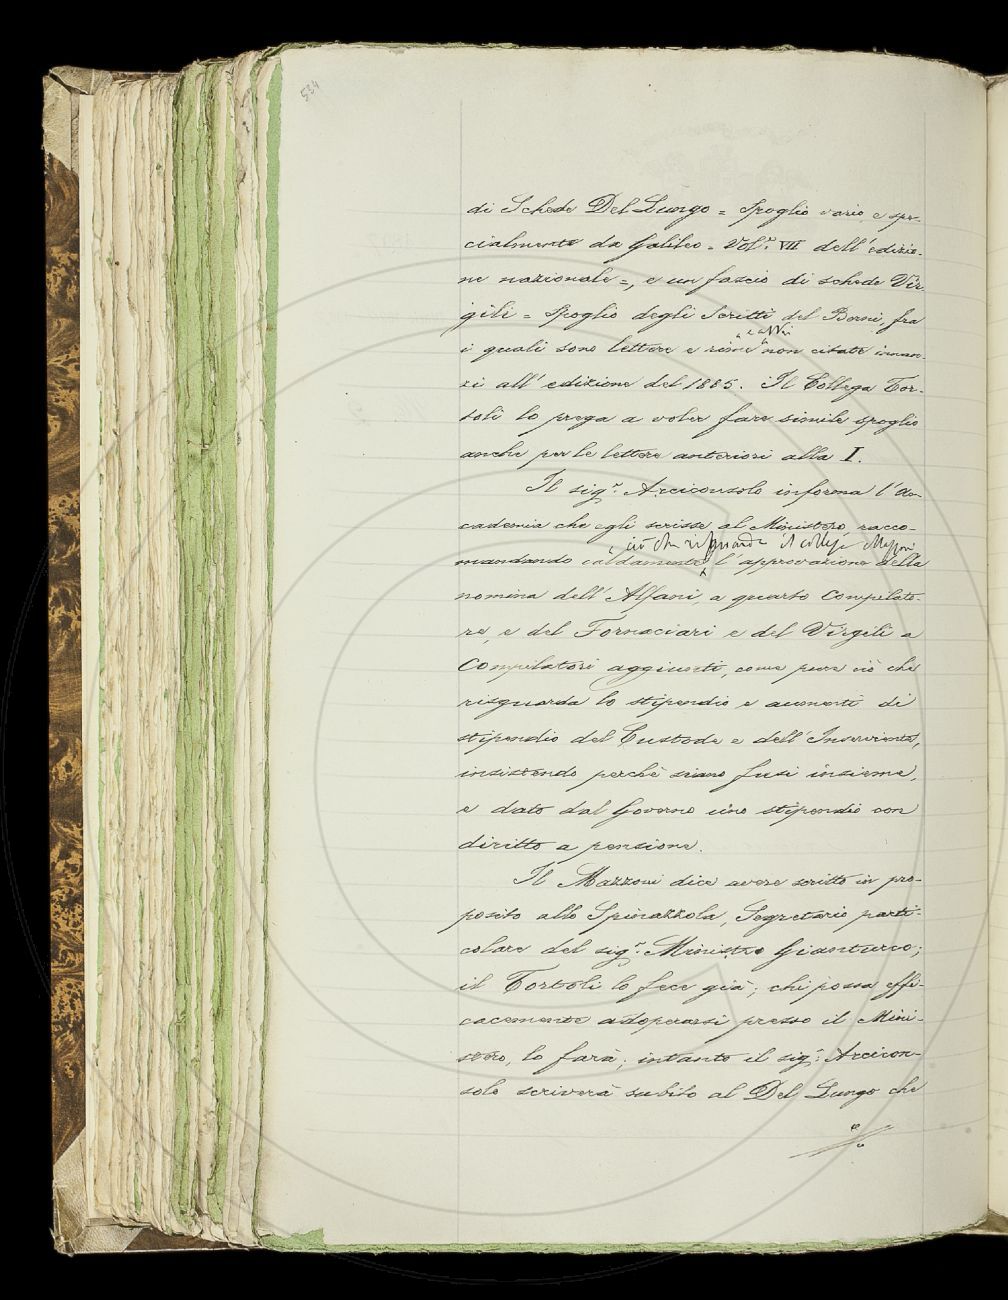 534
di Schede Del Lungo = Spoglio vario e spe-
cialmente da Galileo. Vol.e VII dell'edizio-
ne nazionale =, e un fascio di schede Vir
gili = Spoglio degli Scritti del Berni, fra
i quali sono lettere e rime non citate innan-
zi all'edizione del 1885. Il Collega Tor-
toli lo prega a voler fare simile spoglio
anche per le lettere anteriori alla I.
Il sig.r Arciconsolo informa l'Ac-
cademia che egli scrisse al Ministero racco-
ciò che riguarda il collega Mazzoni
mandando caldamente l'approvazione della
nomina dell'Alfani, a quarto Compilato-
re, e del Fornaciari e del Virgili a
Compilatori aggiunti, come pure ciò che
risguarda lo stipendio e aumenti di
stipendio del Custode e dell'Inserviente,
insistendo perchè siano fusi insieme,
e dato dal Governo uno stipendio con
diritto a pensione.
Il Mazzoni dice avere scritto in pro-
posito allo Spinazzola, Segretario parti-
colare del sig.r Ministro Gianturco;
il Tortoli lo fece già; chi possa effi-
cacemente adoperarsi presso il Mini-
stro, lo farà; intanto il sig.r Arcicon-
solo scriverà subito al Del Lungo che